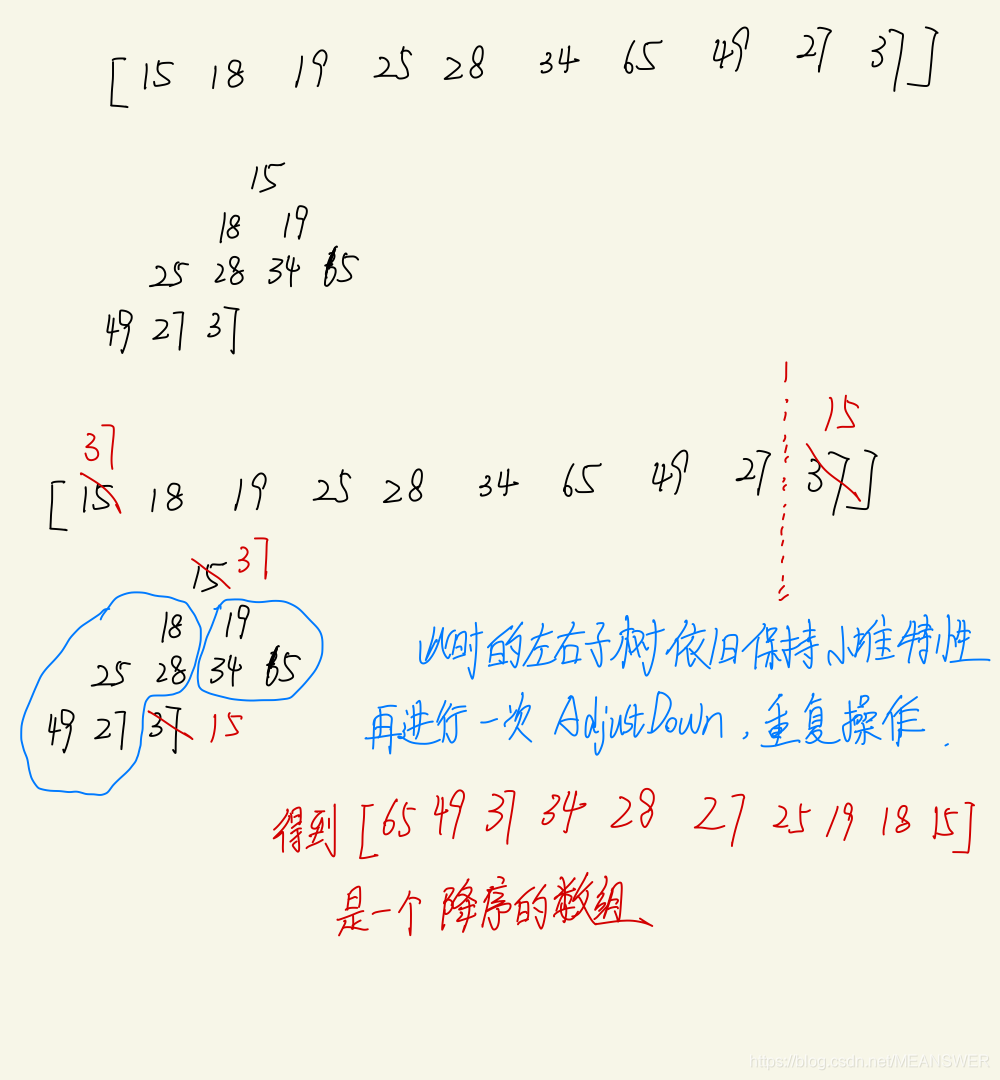 [ 15 18 19 25 28 34 65 49 27 37 ]
15
18 19
25 28 34 65
49 27 37
37 15
[ 15 18 19 25 28 34 65 49 27 37 ]
15 37
18 19
25 28 34 65
49 27 37 15
此时的左右子树依旧保持小堆特性
再进行一次 AdjustDown，重复操作.
得到 [ 65 49 37 34 28 27 25 19 18 15 ]
是一个降序的数组、
https://blog.csdn.net/MEANSWER